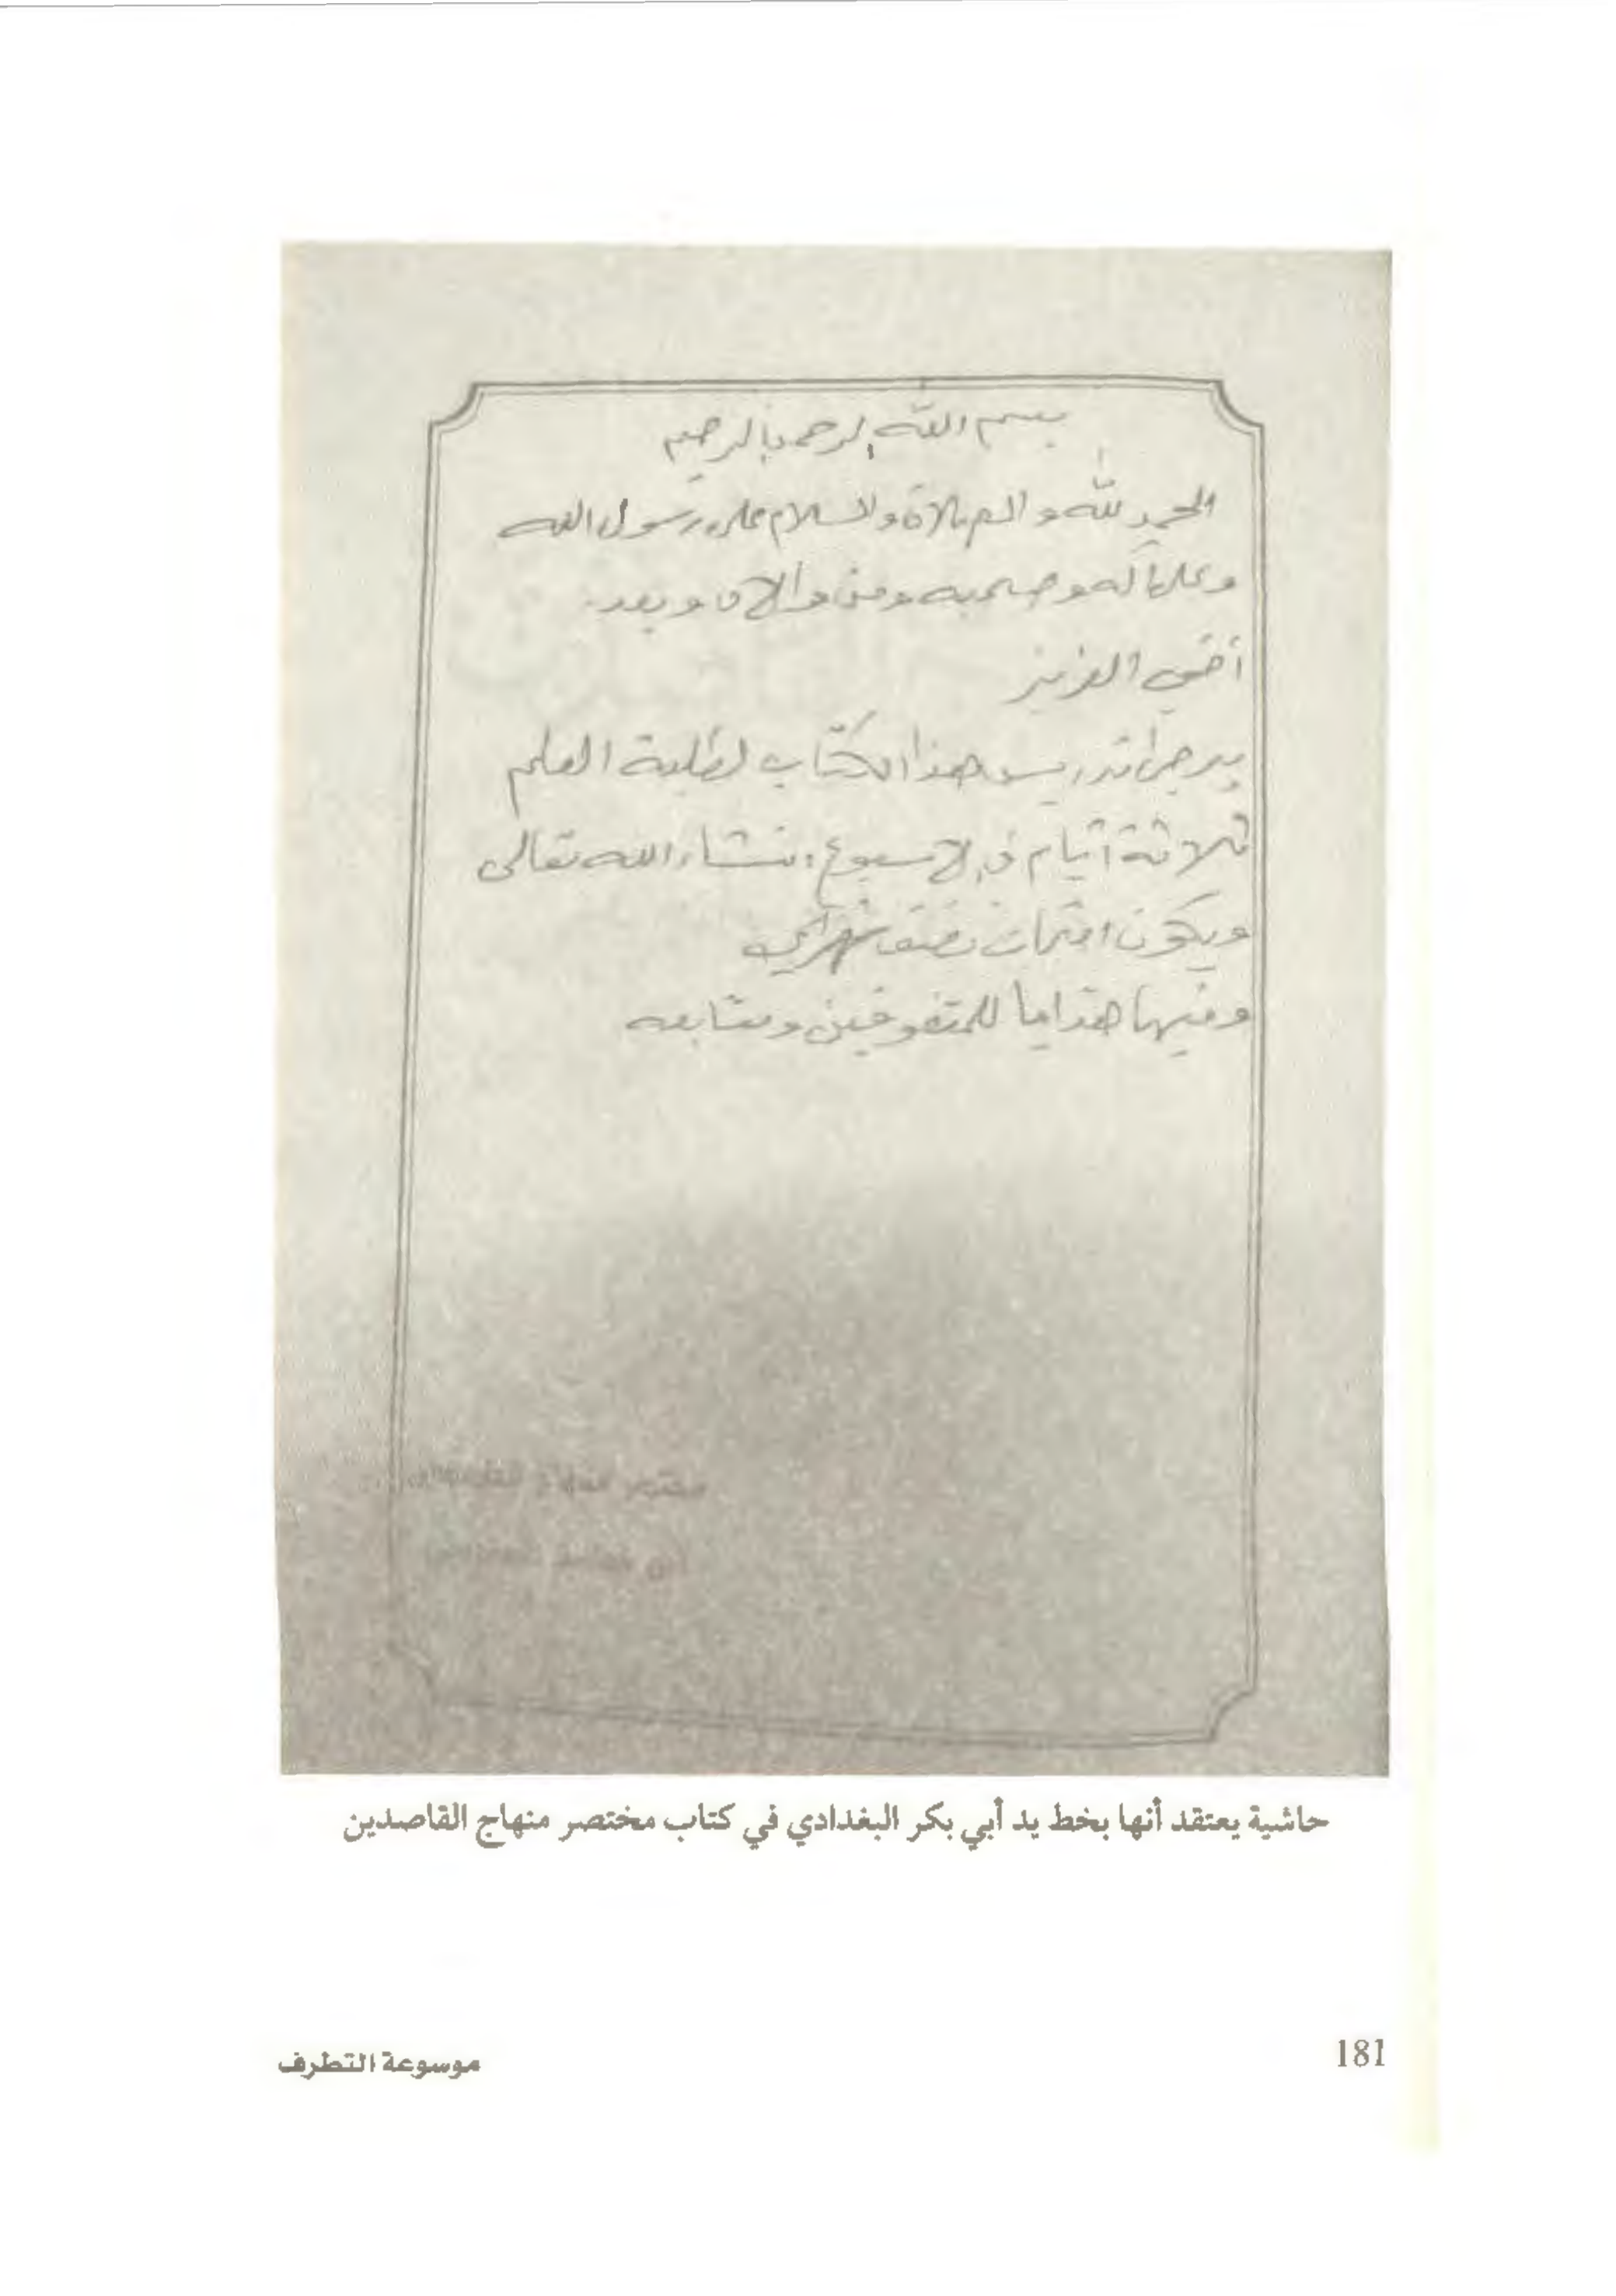 بسم الله الرحمن الرحيم
الحمد لله والصلاة والسلام على رسول الله
وعلى آله وصحبه ومن والاه وبعد.
أخي العزيز
يرجى تدريس هذا الكتاب لطلبة العلم
ثلاثة أيام في الاسبوع انشاء الله تعالى
ويكون امتحان نصف شهري
وفيها هدايا للمتفوقين ومتابعه
مختصر منهاج
حاشية يعتقد أنها بخط يد أبي بكر البغدادي في كتاب مختصر منهاج القاصدين
181
موسوعة التطرف